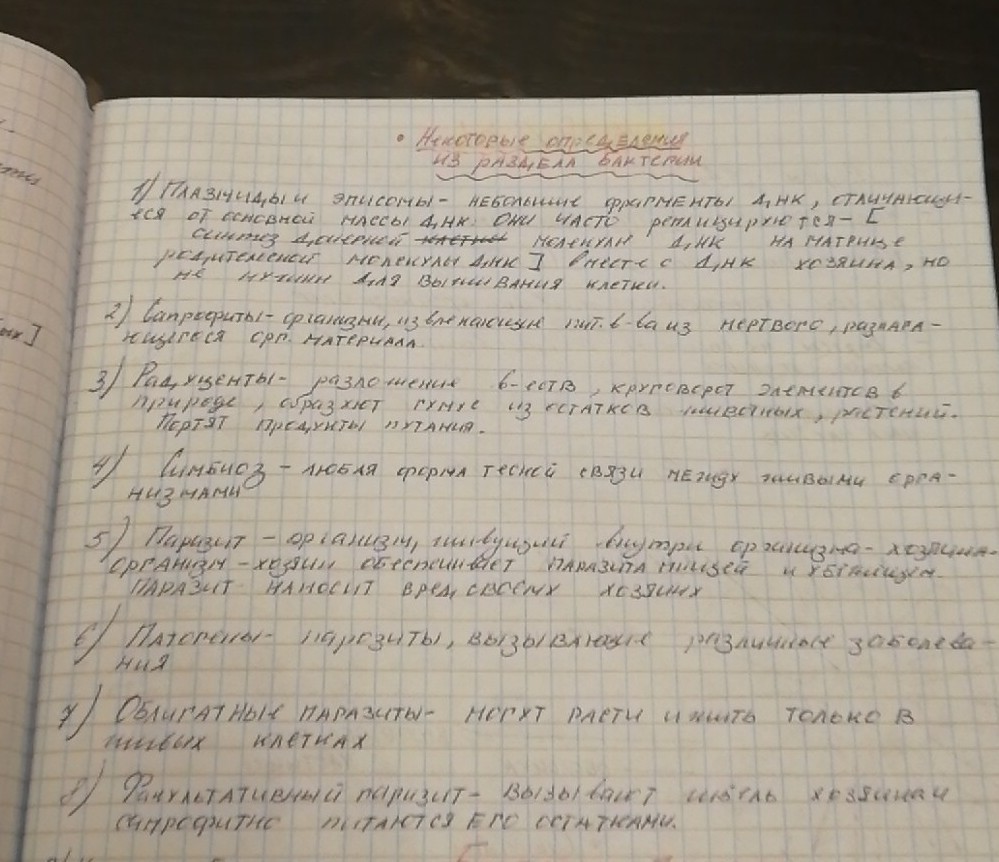 • Некоторые определения
из раздела бактерии
1) Плазмиды и эписомы - небольшие фрагменты ДНК, отличающи-
еся от основной массы ДНК. Они часто реплицируются - [
синтез дочерней молекулы ДНК на матрице
родительской молекулы ДНК] вместе с ДНК хозяина, но
не нужны для выживания клетки.
2) Сапрофиты - организмы, извлекающие пит. в-ва из мертвого, разлага-
ющегося орг. материала.
3) Редуценты - разложение в-еств, круговерот элементов в
природе, образуют гумус из остатков животных, растений.
Портят продукты питания.
4) Симбиоз - любая форма тесной связи между живыми орга-
низмами
5) Паразит - организм, живущий внутри организма - хозяина.
Организм - хозяин обеспечивает паразита пищей и убежищем.
Паразит наносит вред своему хозяину
6) Патогены - парозиты, вызывающие различные заболева-
ния
7) Облигатные паразиты - могут расти и жить только в
живых клетках
8) Факультативный паразит - вызывают гибель хозяина и
сапрофитно питаются его остатками.